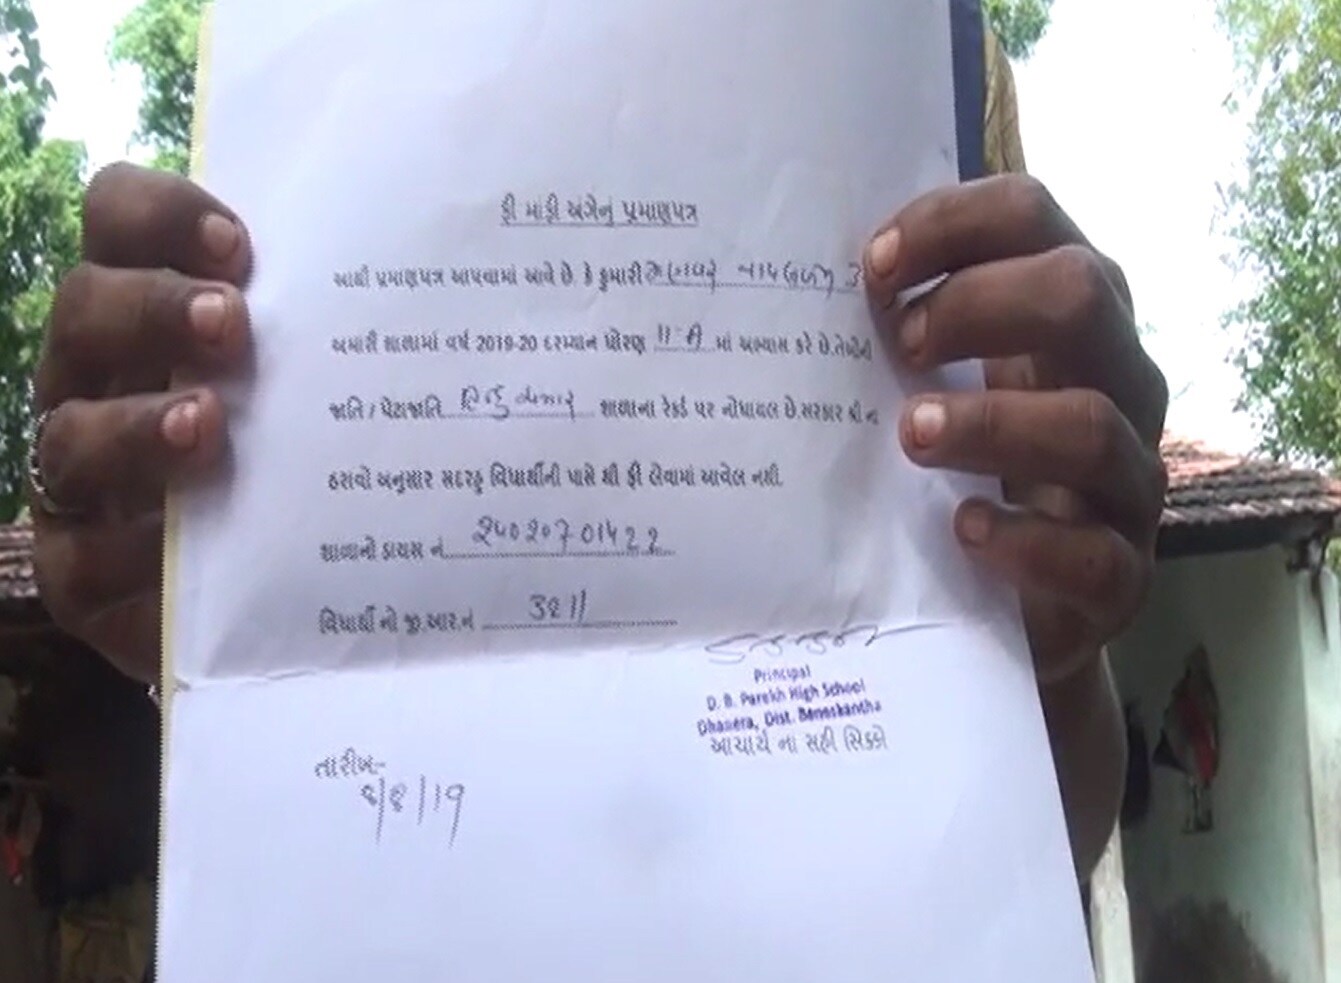 ફી માફી અંગેનું પ્રમાણપત્ર
આથી પ્રમાણપત્ર આપવામાં આવે છે. કે કુમારી
અમારી શાળામાં વર્ષ 2019-20 દરમ્યાન ધોરણ 11-A માં અભ્યાસ કરે છે.તેઓની
જાતિ / પેટાજાતિ હિન્દુ શાળાના રેકર્ડ પર નોંધાયલ છે.સરકાર શ્રી ના
ઠરાવો અનુસાર સદરહુ વિદ્યાર્થીની પાસે થી ફી લેવામાં આવેલ નથી.
શાળાનો ડાયસ નં
વિદ્યાર્થી નો જી.આર.નં
Principal
D. B. Parekh High School
Dhanera, Dist. Banaskantha
આચાર્ય ના સહી સિક્કો
તારીખ:-